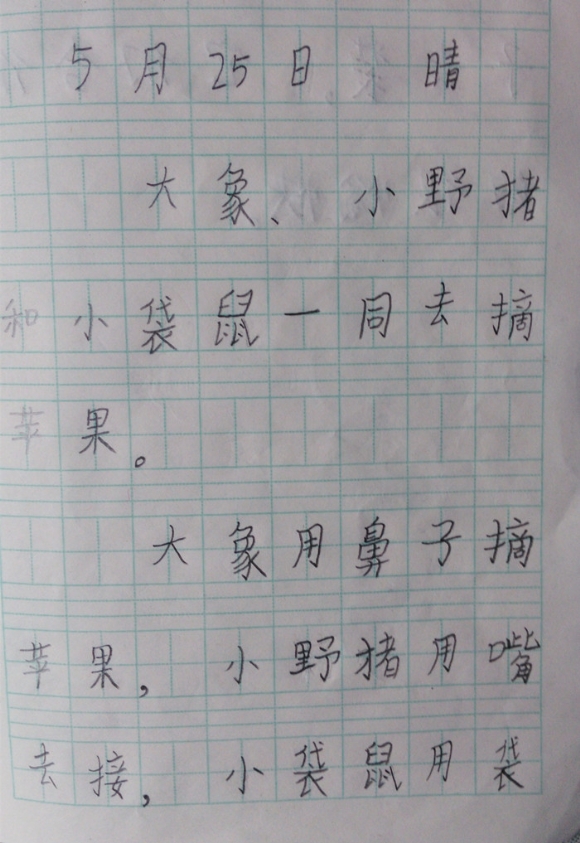 5月25日 晴
大象、小野猪
和小袋鼠一同去摘
苹果。
大象用鼻子摘
苹果,小野猪用嘴
去接,小袋鼠用袋